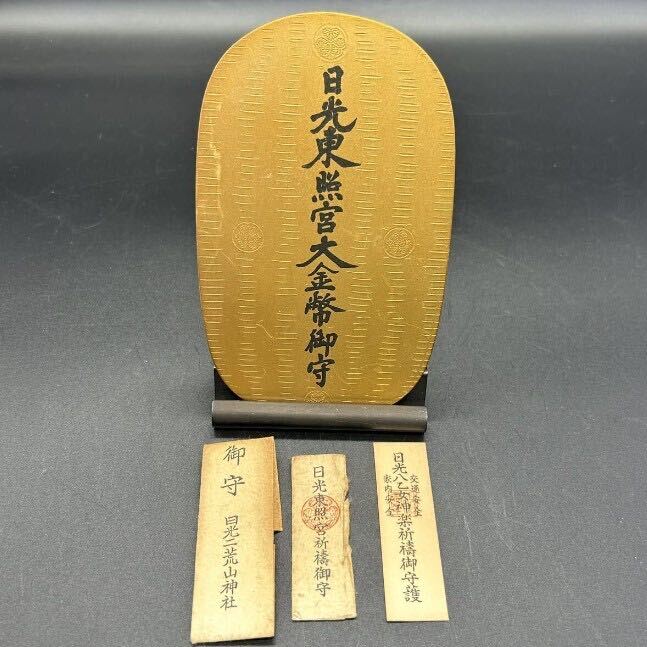 日光東照宮大金幣御守
御守
日光二荒山神社
日光東照宮祈禱御守
交通安全
家内安全
日光八乙女神楽祈禱御守護